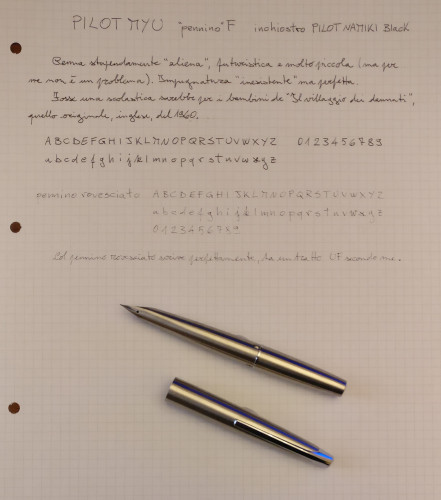 PILOT MYU "pennino" F inchiostro PILOT NAMIKI Black
Penna stupendamente "aliena", futuristica e molto piccola (ma per
me non è un problema). Impugnatura "inesistente" ma perfetta.
Fosse una scolastica sarebbe per i bambini de "Il villaggio dei dannati",
quello originale, inglese, del 1960.
ABCDEFGHIJKLMNOPQRSTUVWXYZ 0123456789
abcdefghijklmnopqrstuvwxyz
pennino rovesciato ABCDEFGHIJKLMNOPQRSTUVWXYZ
abcdefghijklmnopqrstuvwxyz
0123456789
Col pennino rovesciato scrive perfettamente, ha un tratto UF secondo me.